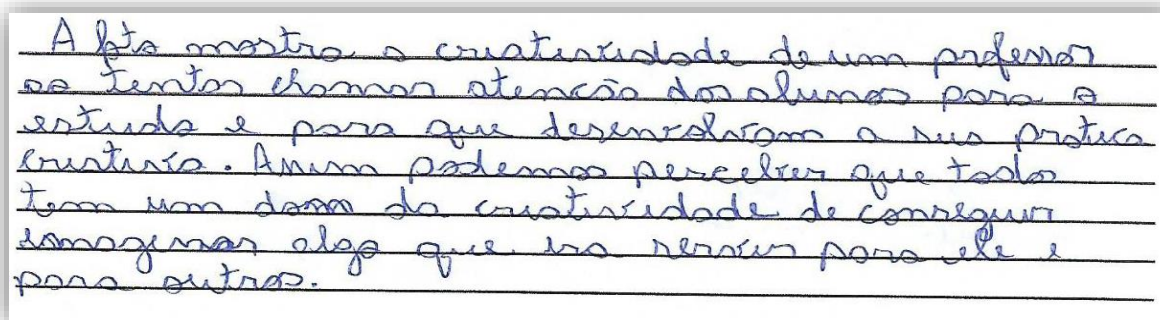 A foto mostra a criatividade de um professor
ao tentar chamar atenção dos alunos para o
estudo e para que desenvolvam a sua pratica
criativa. Assim podemos perceber que todos
tem um dom da criatividade de conseguir
imaginar algo que ira servir para ele e
para outros.